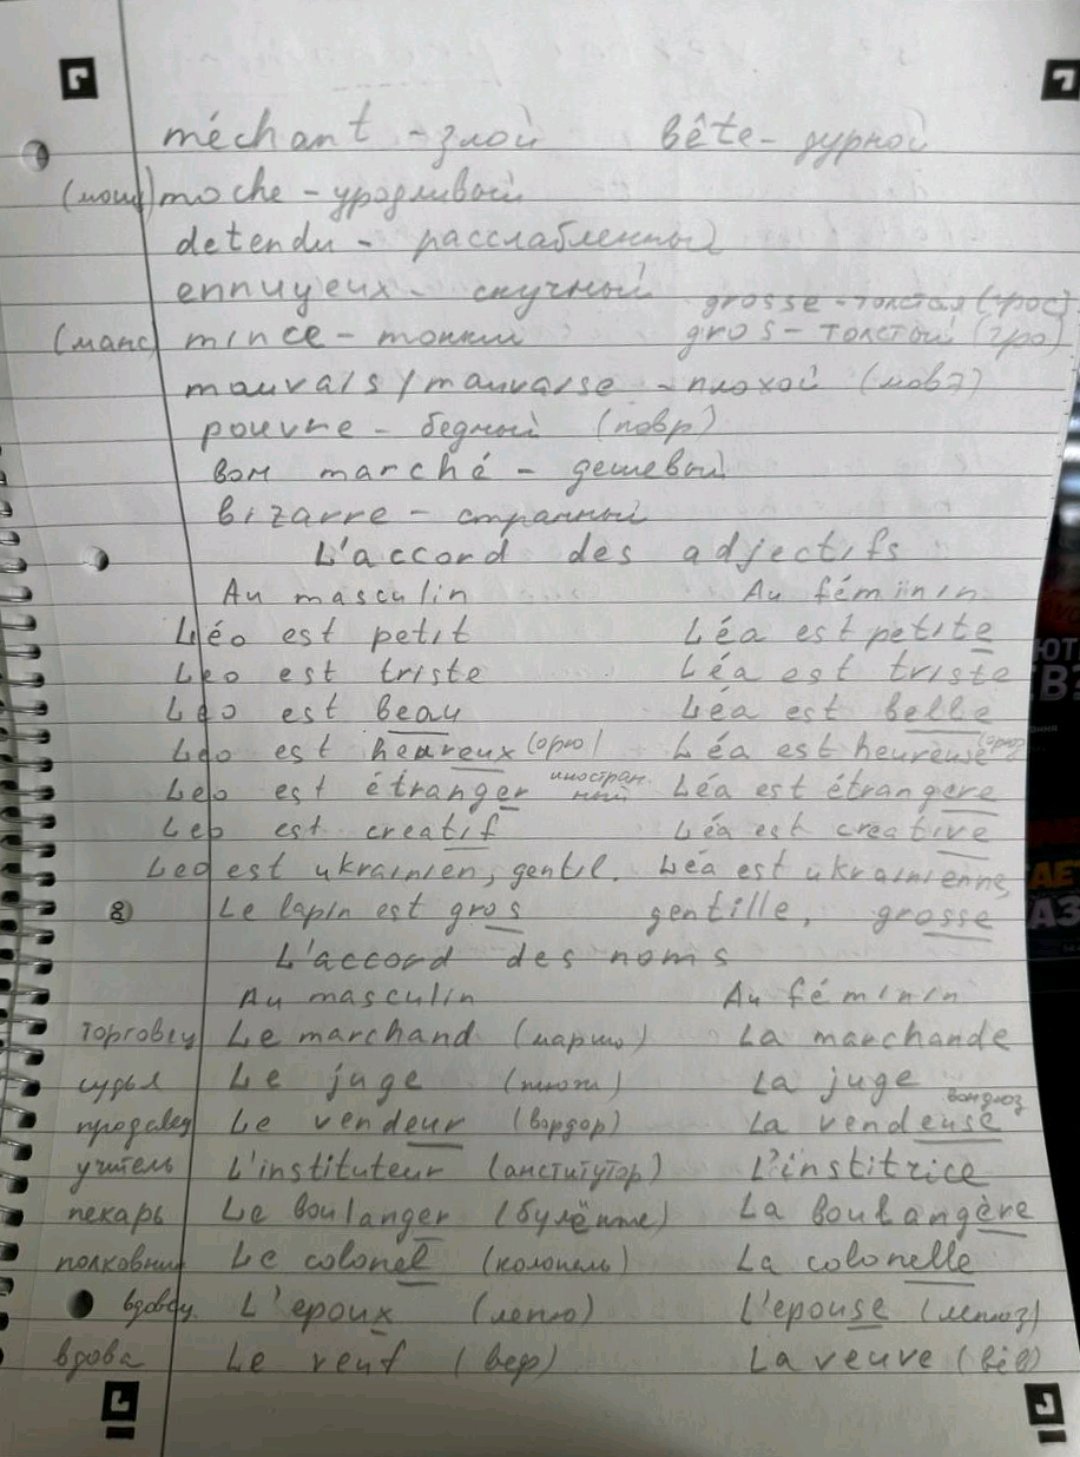 méchant - злой bête - дурной
(мош) moche - уродливый
detendu - расслабленный
ennuyeux - скучный grosse - толстая (грос)
(манс) mince - тонкий gros - толстый (гро)
mauvais / mauvaise - плохой (мовэ)
pouvre - бедный (повр)
bon marché - дешевый
bizarre - странный
L'accord des adjectifs
Au masculin Au féminin
Léo est petit Léa est petite
Leo est triste Léa est triste
Leo est beau Léa est belle
Leo est heureux (орю) Léa est heureuse
Leo est étranger иностранный Léa est étrangere
Leo est creatif Léa est creative
Leo est ukrainien, gentil. Léa est ukrainienne,
Le lapin est gros gentille, grosse
L'accord des noms
Au masculin Au féminin
торговец Le marchand (маршо) La marchande
судья Le juge La juge
продавец Le vendeur (вордор) La vendeuse вондюз
учитель L'instituteur (анститутор) L'institrice
пекарь Le boulanger La boulangère
полковник Le colonel (колонель) La colonelle
вдовец L'epoux (лепю) L'epouse (лепюз)
вдова Le veuf (веф) La veuve